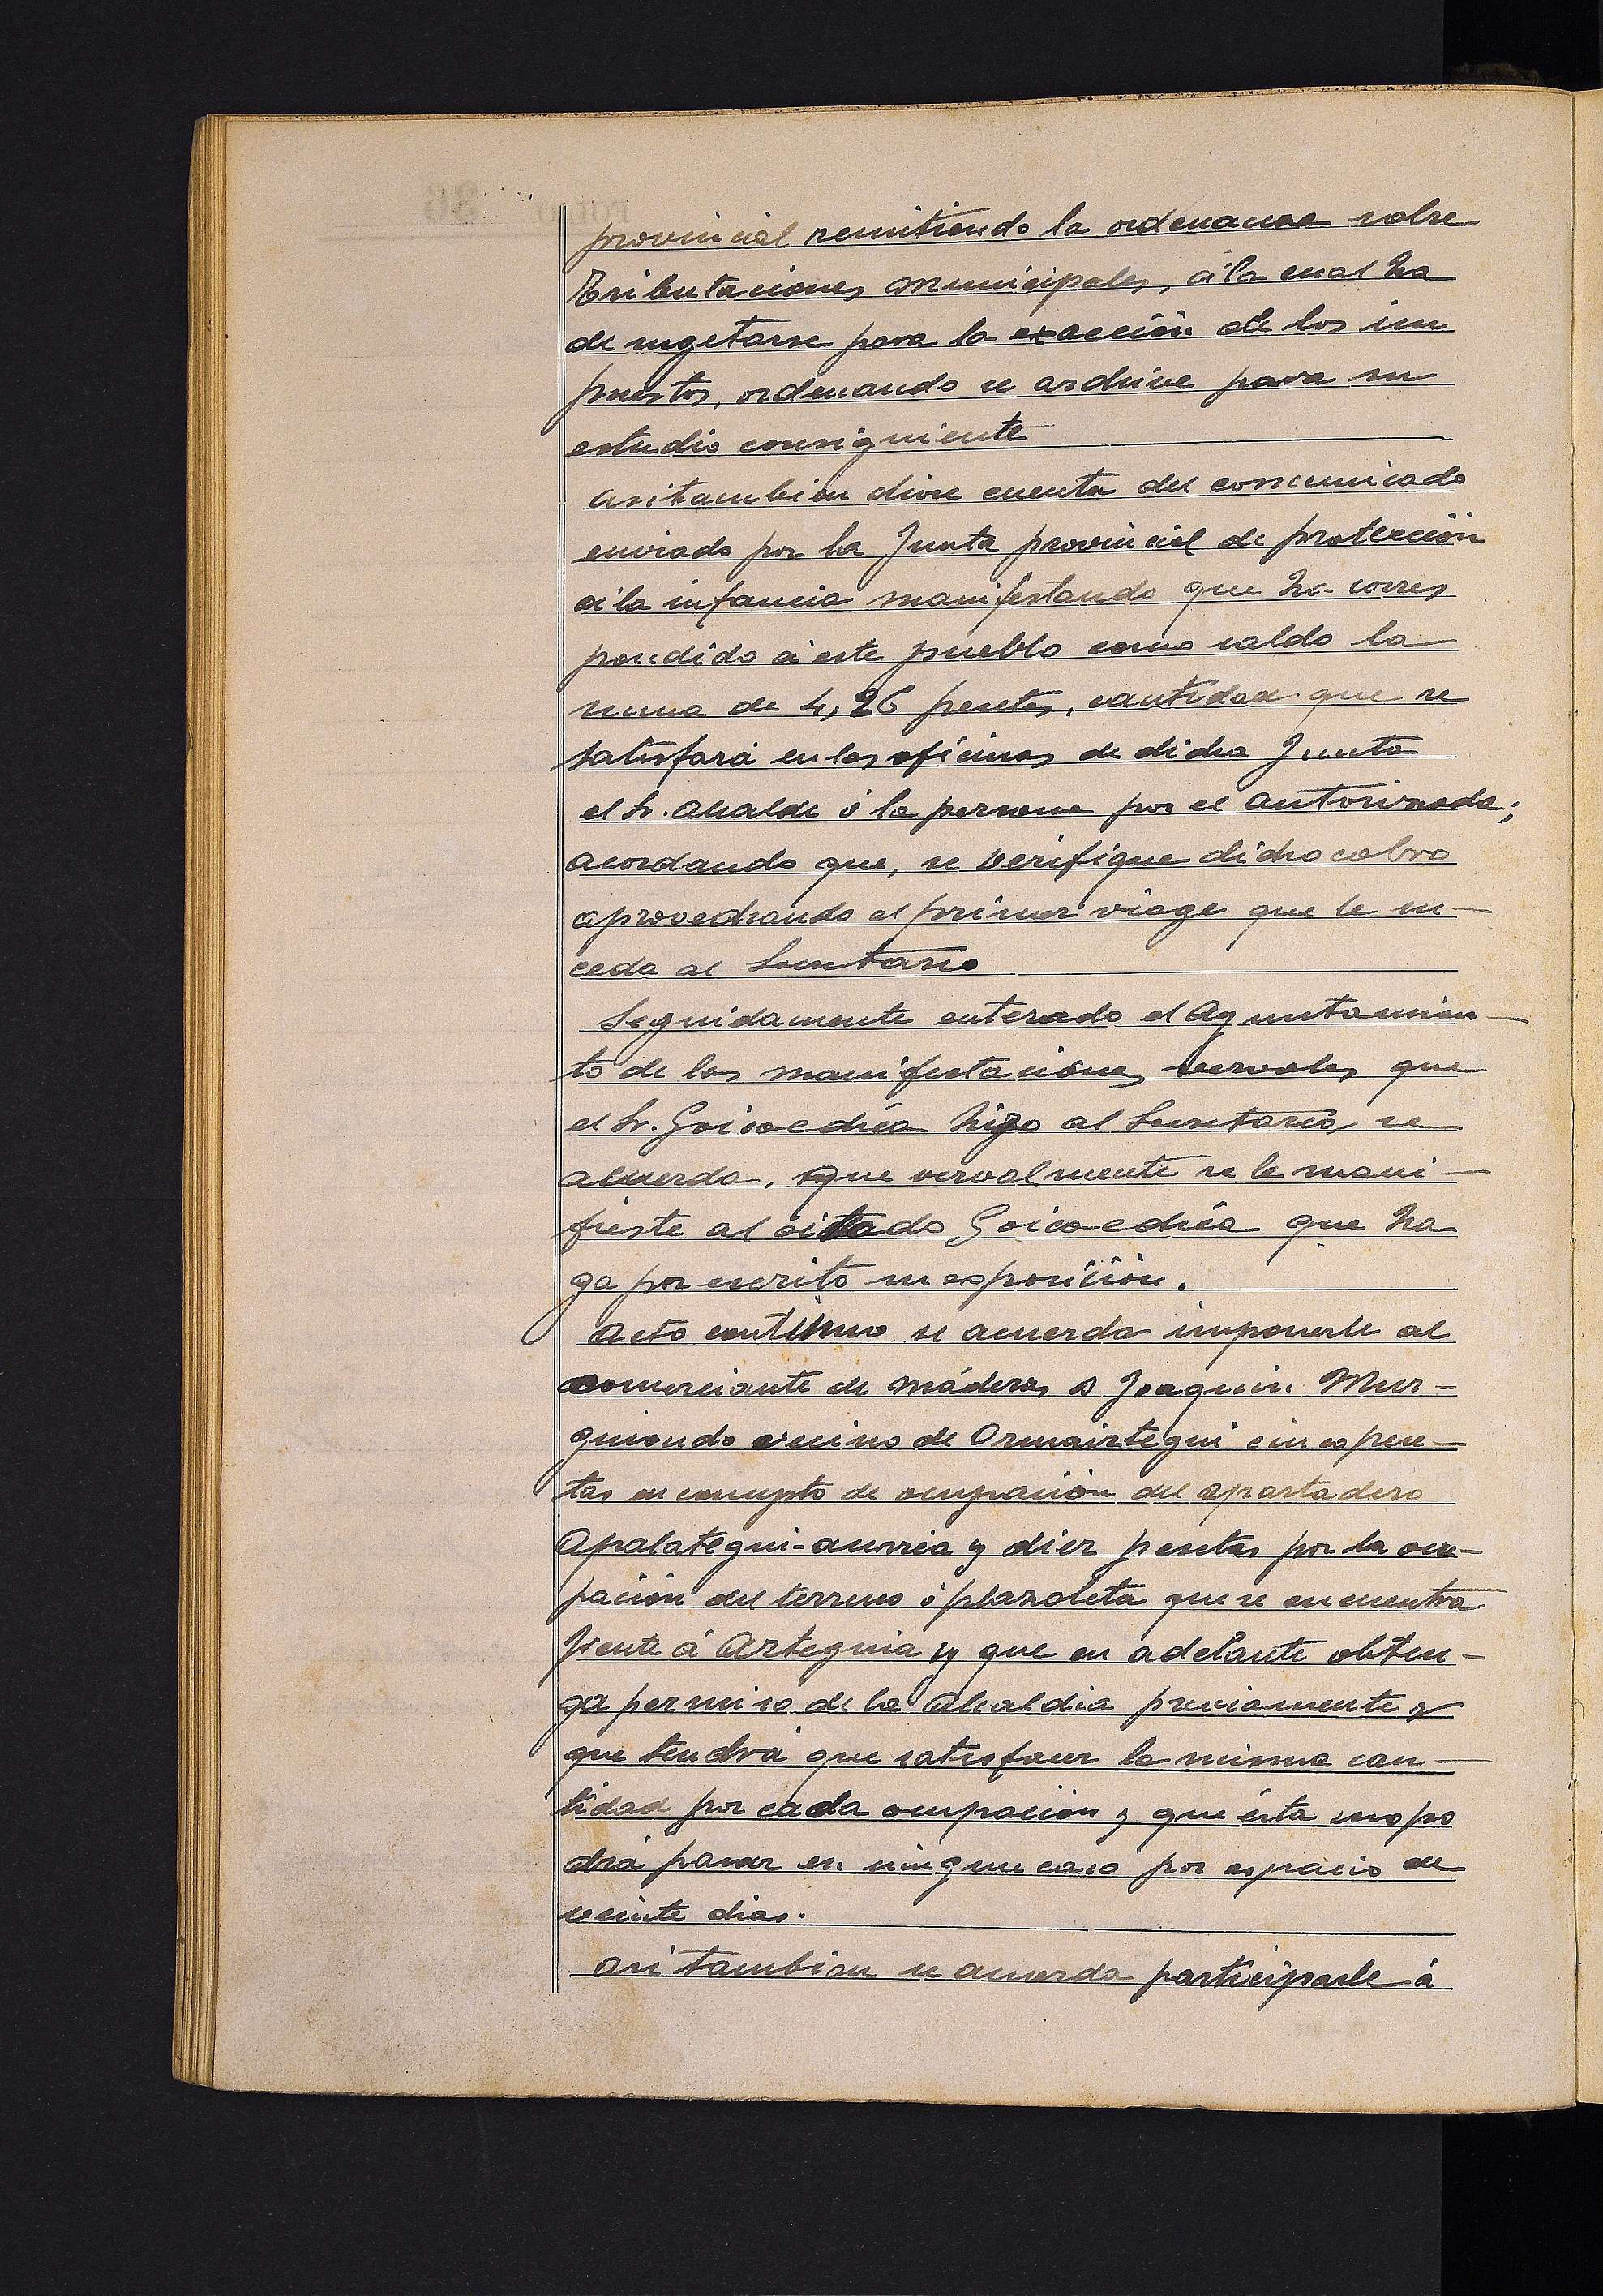 provincial remitiendo la ordenanza sobre
Tributaciones municipales, á la cual ha
de sugetarse para la exacción de los im
puestos, ordenando se archive para su
estudio consiguiente
Asi tambien diose cuenta del comunicado
enviado por la Junta provincial de protección
á la infancia manifestando que ha corres
pondido á este pueblo como saldo la
suma de 4,26 pesetas, cantidad que se
satisfará en las oficinas de dicha Junta
el Sr. Alcalde ó la persona por el autorizada;
acordando que, se verifique dicho cobro
aprovechando el primer viage que le su-
ceda al Secretario
Seguidamente enterado el Ayuntamien-
to de las manifestaciones vervales que
el Sr. Goicoechéa hizo al Secretario, se
acuerda, que vervalmente se le mani-
fieste al citado Goicoechéa que ha
ga por escrito su exposición.
Acto continuo se acuerda imponerle al
comerciante de máderas D Joaquin Mur-
guiondo vecino de Ormaiztegui cinco pese-
tas en concepto de ocupación del apartadero
Apalategui-aurrea y diez pesetas por la ocu-
pación del terreno ó plazoleta que se encuentra
frente á Arteguia y que en adelante obten-
ga permiso de la Alcaldia previamente y
que tendrá que satisfacer la misma can-
tidad por cada ocupación y que ésta no po
drá pasar en ningun caso por espacio de
veinte dias.
Asi tambien se acuerda participarle á